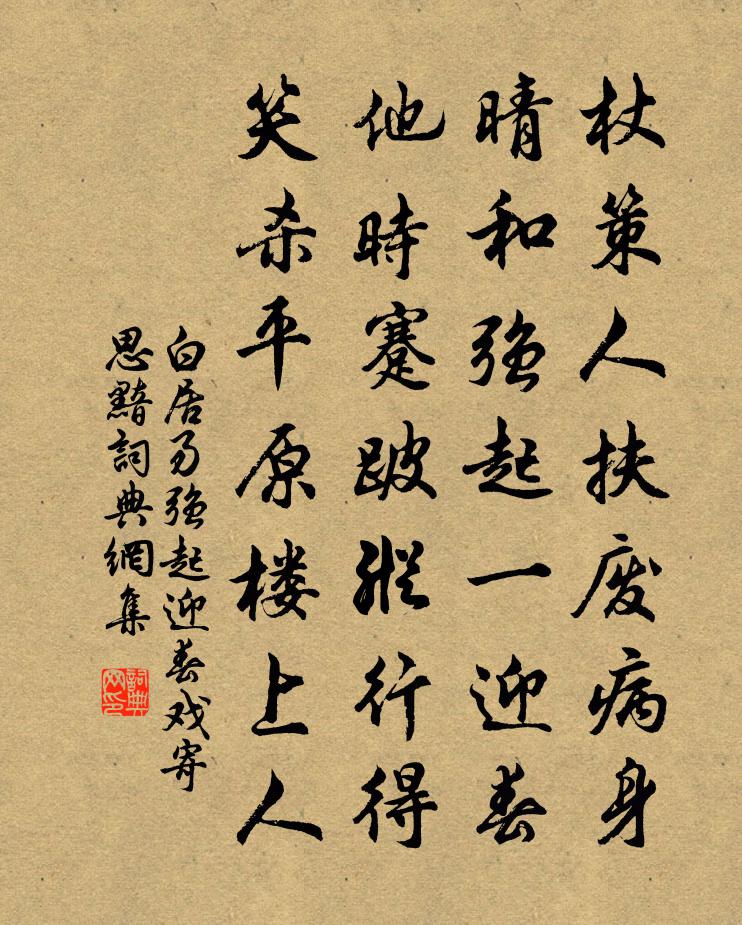 杖策人扶废病身
晴和強起一迎春
他時蹇跛縱行得
笑杀平原楼上人
白居易強起迎春戏寄
思黯詞典網集
詞典网印